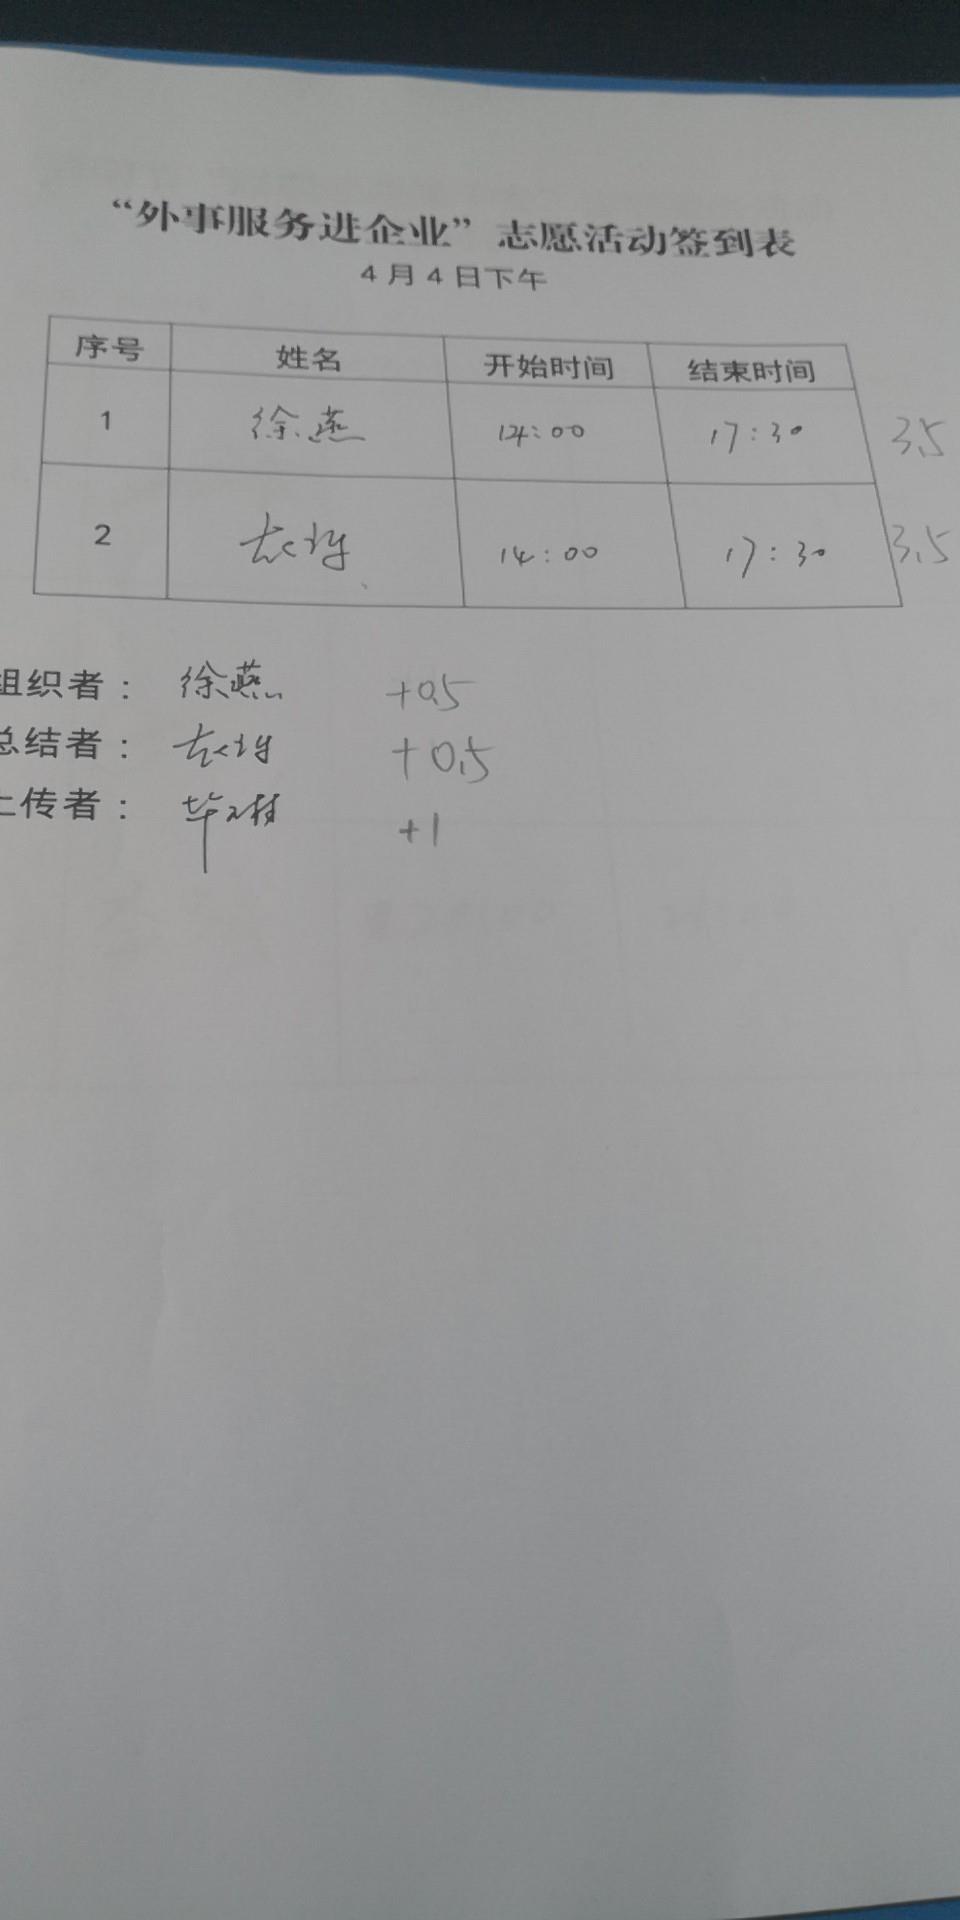 “外事服务进企业”志愿活动签到表
4月4日下午
序号 姓名 开始时间 结束时间
1 徐燕 14:00 17:30 3.5
2 14:00 17:30 3.5
组织者： 徐燕 +0.5
总结者： +0.5
上传者： +1